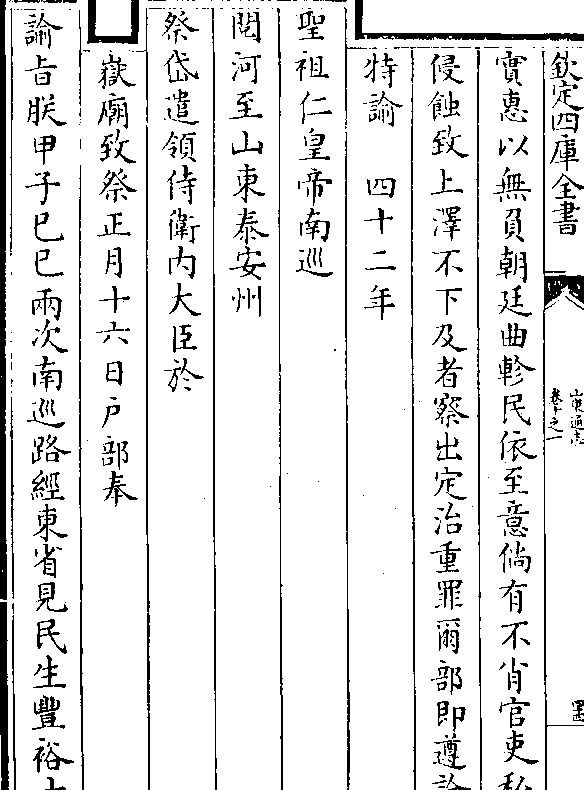 欽定四庫全書
山東通志
卷一之一
實惠以無負朝廷曲軫民依至意倘有不肖官吏私
侵蝕致上澤不下及者察出定治重罪爾部即遵諭
特諭　四十二年
聖祖仁皇帝南巡
閱河至山東泰安州
祭岱遣領侍衛内大臣於
嶽廟致祭正月十六日户部奉
諭旨朕甲子己巳兩次南巡路經東省見民生豐裕